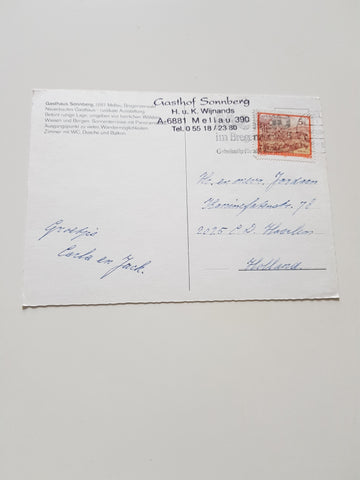 Gasthaus Sonnberg, 6881 Mellau, Bregenzerwald
Neuerbautes Gasthaus - rustikale Ausstattung
Selten ruhige Lage, umgeben von herrlichen Wäldern,
Wiesen und Bergen. Sonnenterrasse mit
Ausgangspunkt zu vielen Wandermöglichkeiten
Zimmer mit WC, Dusche und Balkon.
Gasthof Sonnberg
H. u. K. Wijnands
A-6881 Mellau 390
Tel. 0 55 18 / 23 80
5
im Brege
Groetjes
Carla en Jack.
Hr. en mevr. Jordaan
78
2025 C.D. Haarlem
Holland